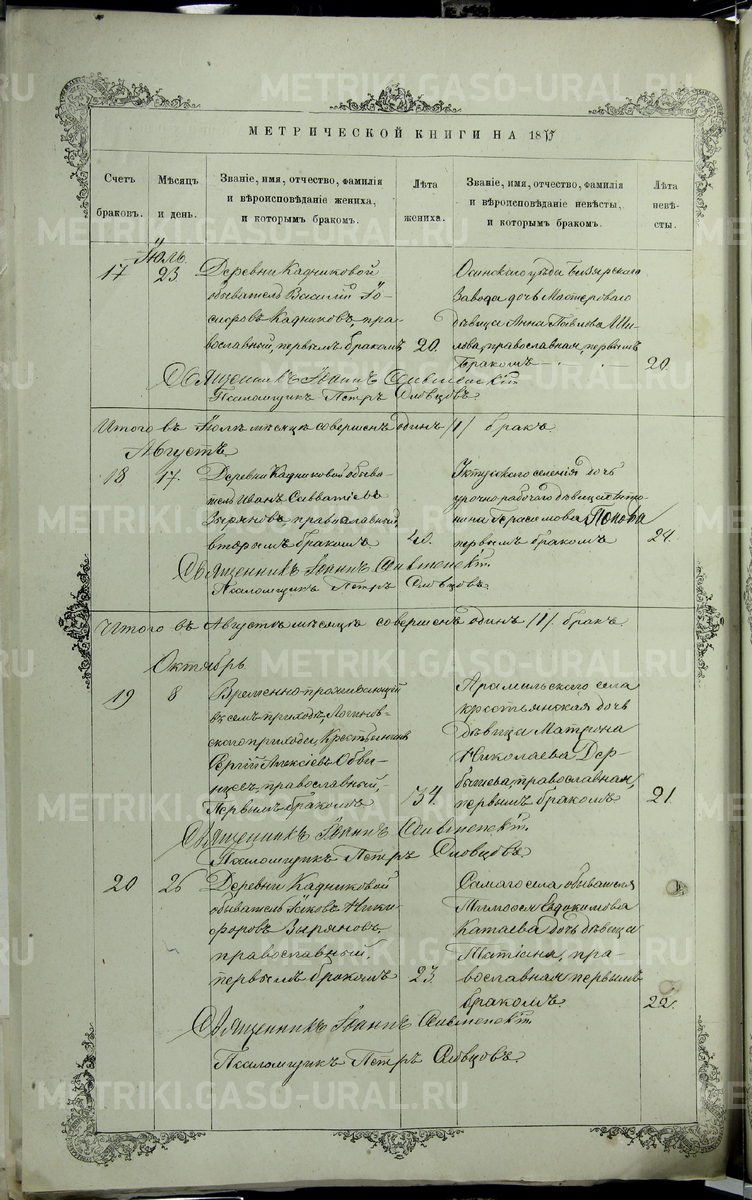 МЕТРИЧЕСКОЙ КНИГИ НА 18
Счетъ браковъ.
Мѣсяцъ и день.
Званіе, имя, отчество, фамилія
и вѣроисповѣданіе жениха,
и которымъ бракомъ.
Лѣта жениха.
Званіе, имя, отчество, фамилія
и вѣроисповѣданіе невѣсты,
и которымъ бракомъ.
Лѣта невѣсты.
Іюль
17
23.
Деревни Кадниковой
обыватель Василій
Кадниковъ, пра-
вославный, первымъ бракомъ
20.
Осинскаго уѣзда Бизярскаго
Завода дочь Мастероваго
дѣвица Анна Павлова
православная, первымъ
бракомъ
20.
Священникъ Іоаннъ
Псаломщикъ Петръ Словцовъ.
Итого въ Іюлѣ мѣсяцѣ совершенъ одинъ /1/ бракъ.
Августъ.
18
17.
Деревни Кадниковой обыва-
тель Иванъ Савватіевъ
Зыряновъ, православный,
вторымъ бракомъ
40.
селенія дочь
урочнорабочаго дѣвица
Герасимова Попова
первымъ бракомъ
24.
Священникъ Іоаннъ
Псаломщикъ Петръ Словцовъ.
Итого въ Августѣ мѣсяцѣ совершенъ одинъ /1/. бракъ
Октябрь
19
8
Временно-проживающій
въ семъ приходѣ, Логинов-
скаго прихода, Крестьянинъ
Сергій Алексіевъ Обвин-
цевъ, православный,
Первымъ бракомъ
34.
Арамильскаго села
крестьянская дочь
дѣвица Матрона
Николаева Дер-
бышева, православная,
первымъ бракомъ
21.
Священникъ Іоаннъ
Псаломщикъ Петръ Словцовъ.
20
26
Деревни Кадниковой
обыватель Іаковъ Ники-
форовъ Зыряновъ,
православный,
первымъ бракомъ
23.
Самаго села обывателя
Тимофея Евдокимова
Катаева дочь дѣвица
Татіана, пра-
вославная первымъ
бракомъ
22.
Священникъ Іоаннъ
Псаломщикъ Петръ Словцовъ.
METRIKI.GASO-URAL.RU